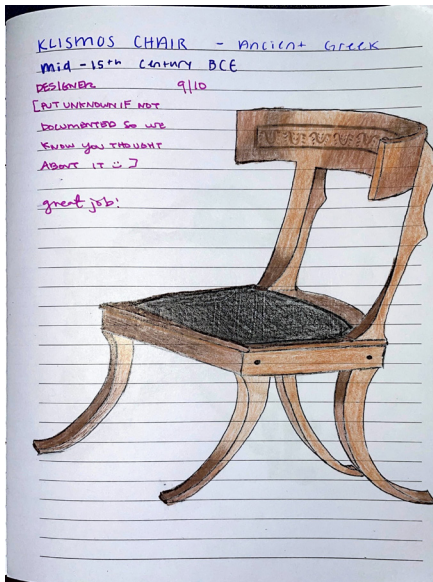 KLISMOS CHAIR - Ancient Greek
mid-15th Century BCE
DESIGNER 9/10
[PUT UNKNOWN IF NOT
DOCUMENTED SO WE
KNOW YOU THOUGHT
ABOUT IT :)]
great job!